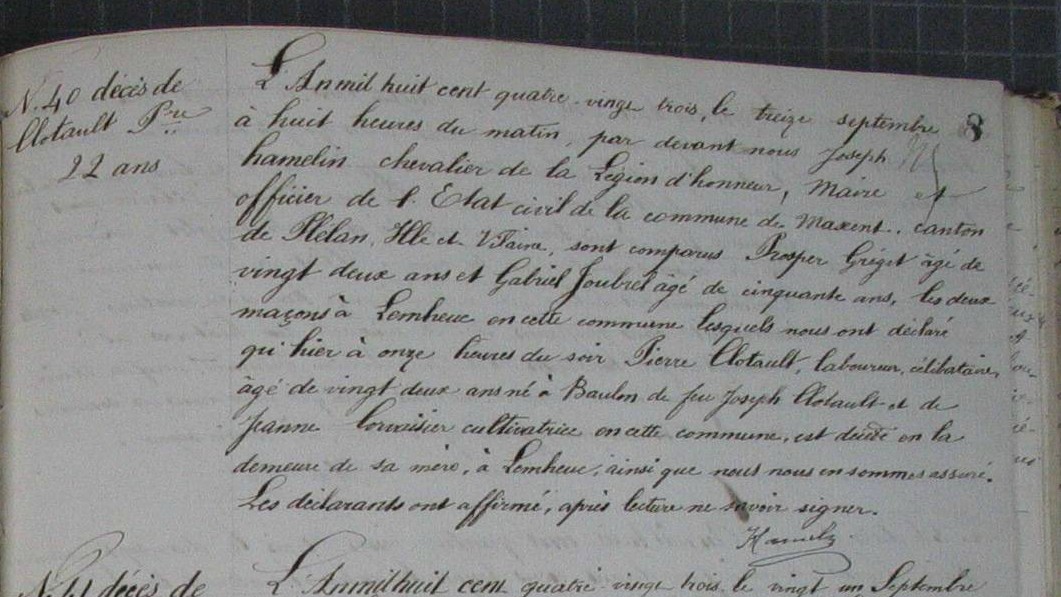 N. 40 décès de
Clotault Pre
22 ans
L'An mil huit cent quatre-vingt trois, le treize septembre
à huit heures du matin, par devant nous Joseph
hamelin chevalier de la Légion d'honneur, Maire et
officier de l'Etat civil de la commune de Maxent, canton
de Plélan, Ille et Vilaine, sont comparus Prosper Gréget âgé de
vingt deux ans et Gabriel Joubrel âgé de cinquante ans, les deux
maçons à Lemheuc en cette commune lesquels nous ont déclaré
qu'hier à onze heures du soir Pierre Clotault, laboureur, célibataire,
âgé de vingt deux ans né à Baulon de feu Joseph Clotault et de
Jeanne Corvaisier cultivatrice en cette commune, est décédé en la
demeure de sa mère, à Lemheuc, ainsi que nous nous en sommes assuré.
Les déclarants ont affirmé, après lecture ne savoir signer.
Hamelin
8
N. 41 décès de
L'An mil huit cent quatre-vingt trois, le vingt un Septembre